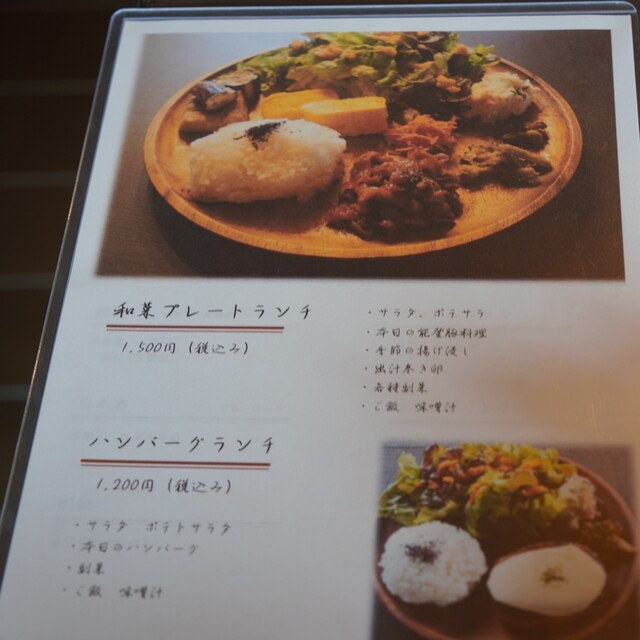 和菜プレートランチ
1,500円（税込み）
・サラダ、ポテサラ
・本日の能登豚料理
・季節の揚げ浸し
・出汁巻き卵
・各種副菜
・ご飯　味噌汁
ハンバーグランチ
1,200円（税込み）
・サラダ　ポテトサラダ
・本日のハンバーグ
・副菜
・ご飯　味噌汁